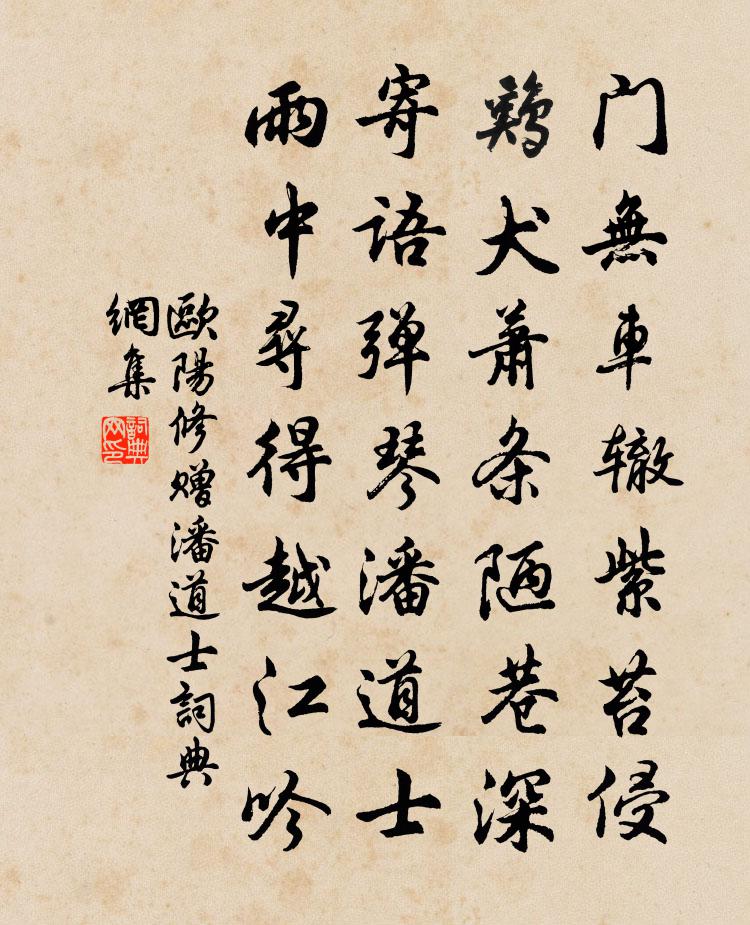 门無車辙紫苔侵
鷄犬萧条陋巷深
寄语弹琴潘道士
雨中尋得越江吟
歐陽修赠潘道士詞典
網集
詞典
网印